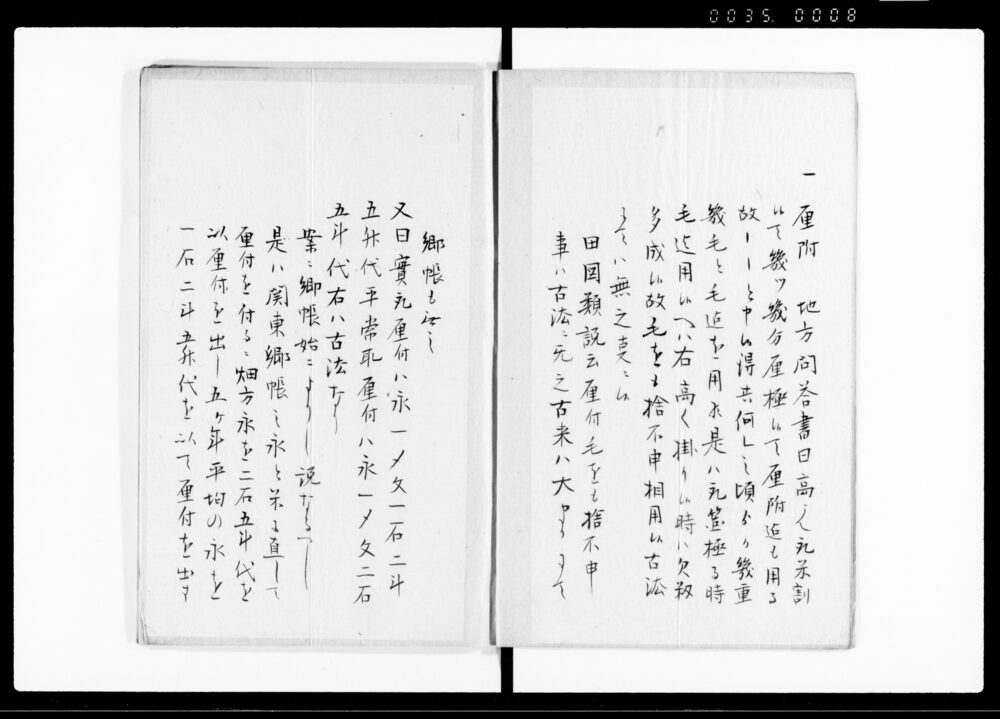 0035.0008
一 厘附 地方問答書曰高へ取米割
候て幾ツ幾分厘極候て厘附迄も用る
故 と申候得共何 之頃より幾重
幾毛と毛迄を用ひ是ハ取箇極る時
毛迄用候へハ右高く掛り候時ハ欠
多成候故毛をも捨不申相用候古法
ニハ無之事ニ候
田園類説云厘付毛をも捨不申
事ハ古法ニ元之古来ハ大
郷帳も
又曰實取厘付ハ永一〆文一石二斗
五升代平常取厘付ハ永一〆文二石
五斗代右ハ古法なり
案ニ郷帳始ニ 説なるへし
是ハ関東郷帳之永と米に直して
厘付を付るニ畑方永を二石五斗代を
以厘付を出し五ヶ年平均の永を
一石二斗五升代を以て厘付を出す